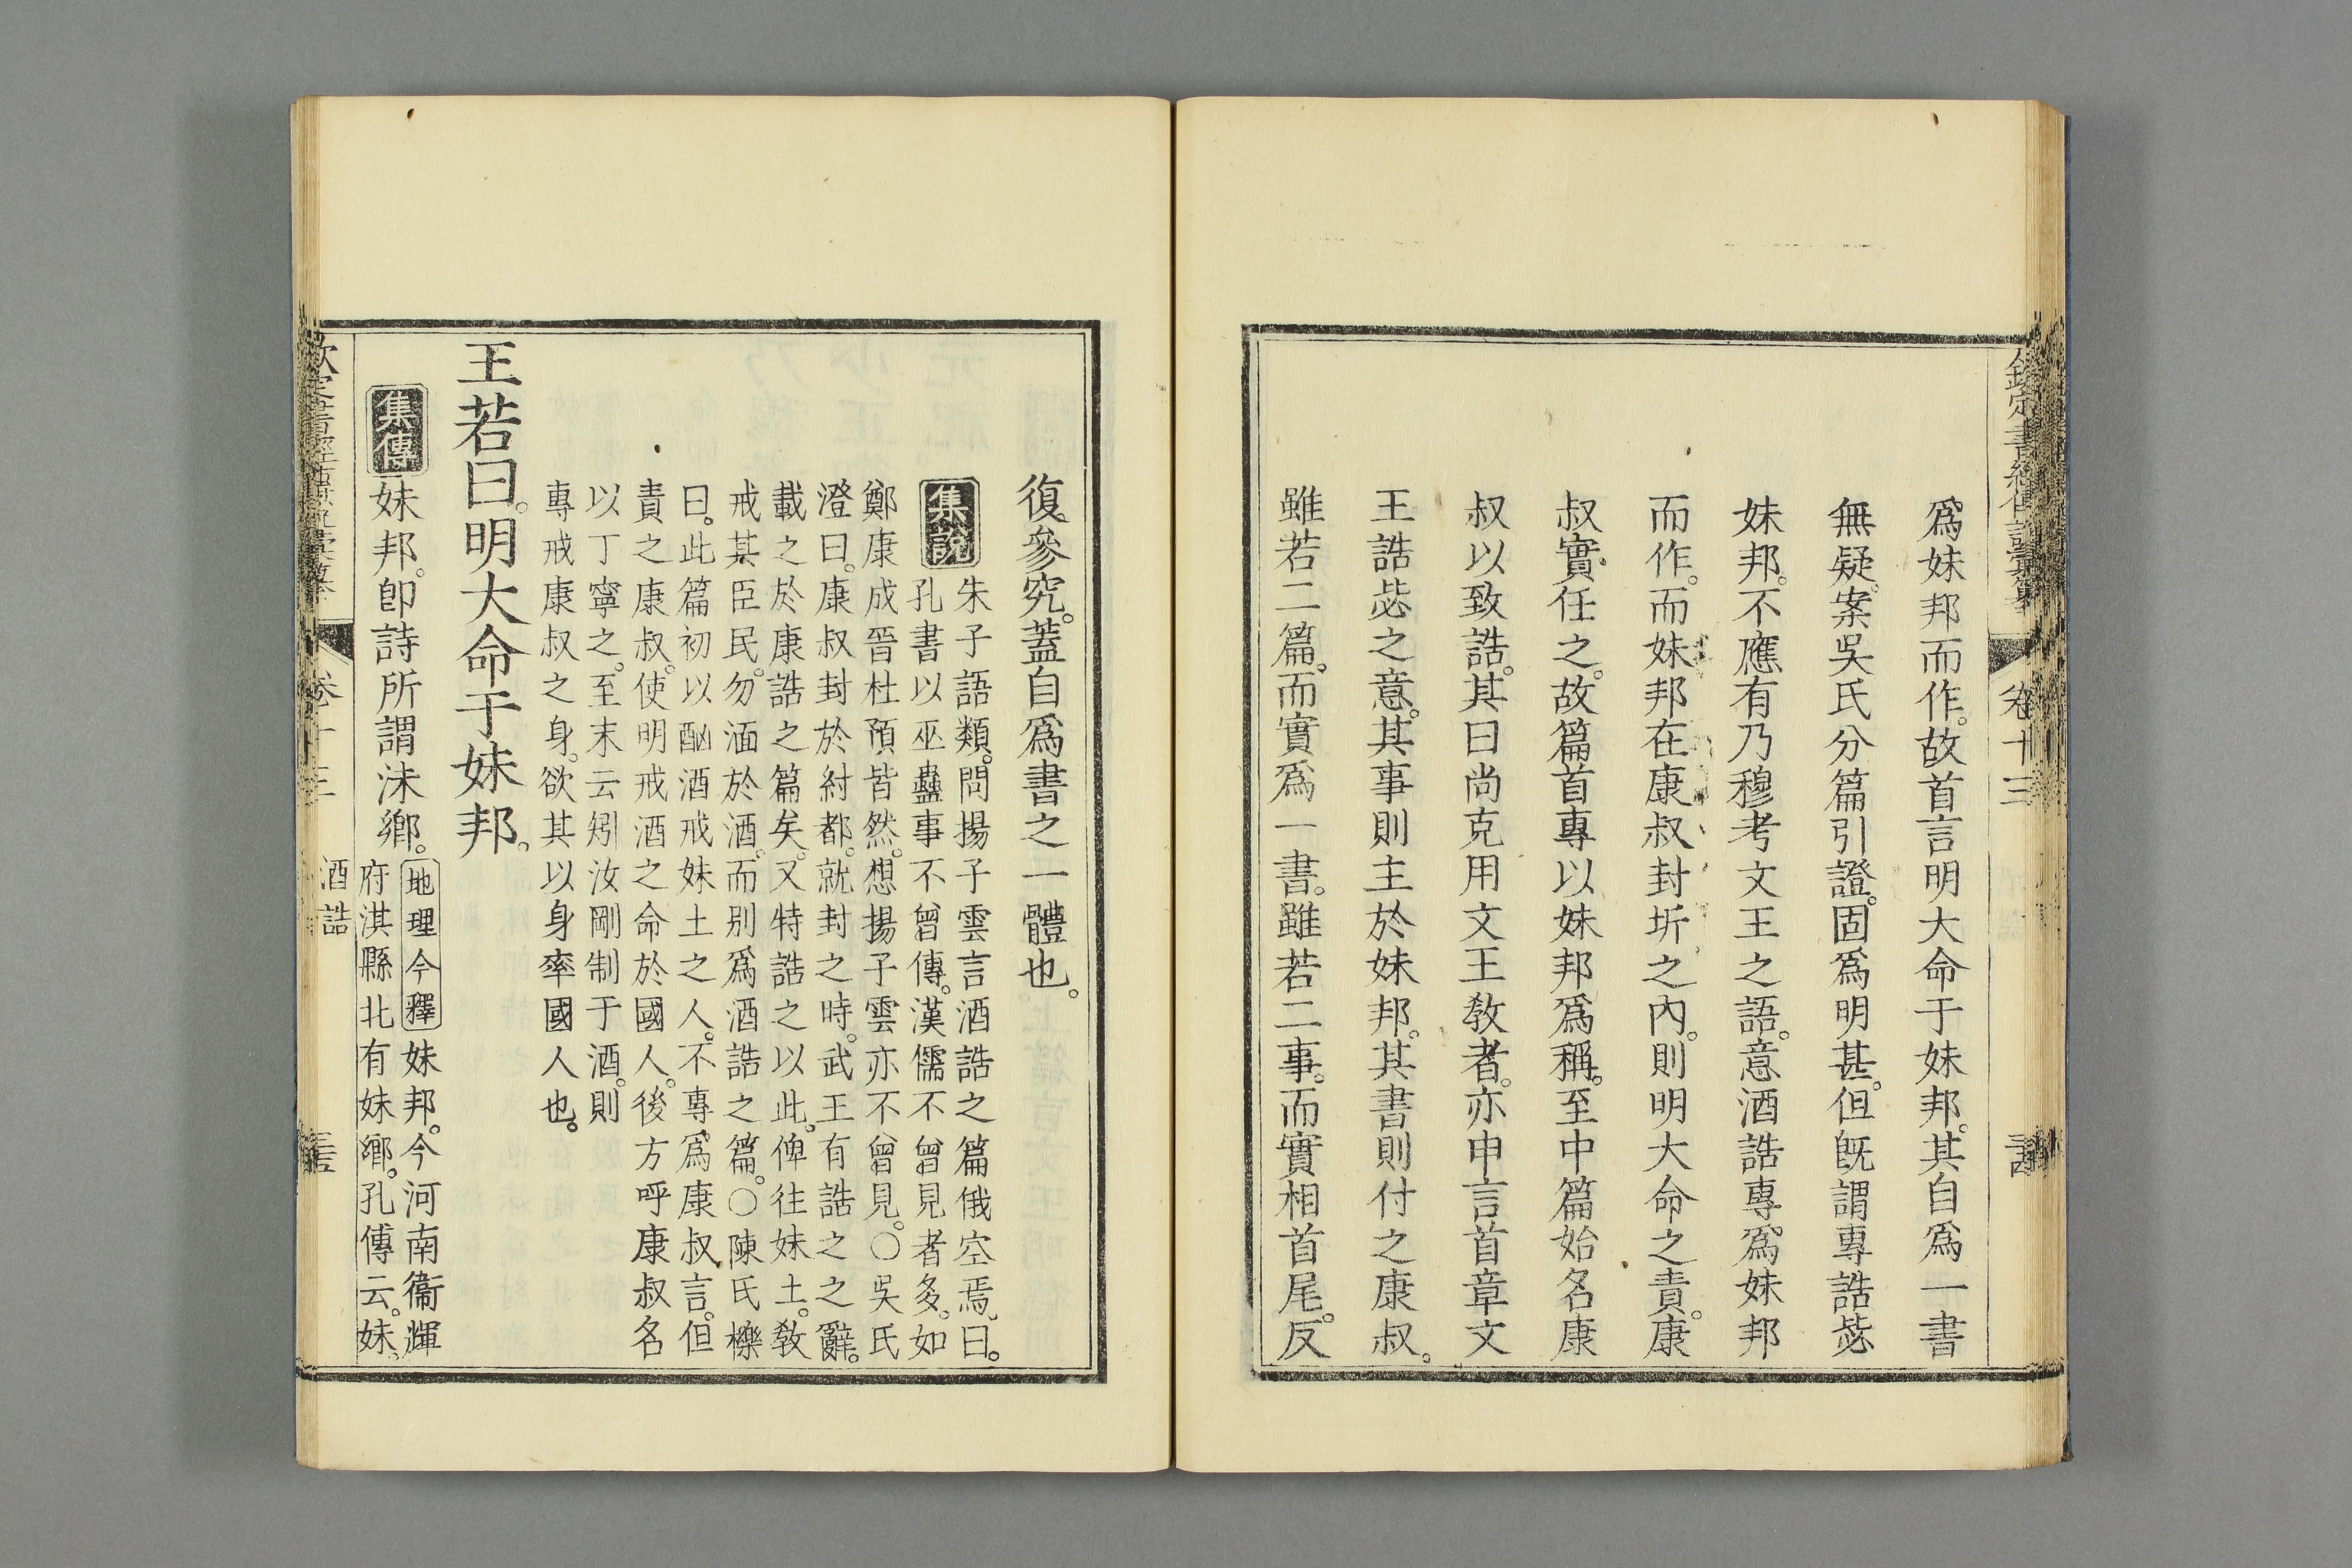 欽定書經傳說彙纂 卷十三
爲妹邦而作。故首言明大命于妹邦。其自爲一書
無疑。案吳氏分篇引證。固爲明甚。但旣謂專誥毖
妹邦。不應有乃穆考文王之語。意酒誥專爲妹邦
而作。而妹邦在康叔封圻之內。則明大命之責。康
叔實任之。故篇首專以妹邦爲稱。至中篇始名康
叔以致誥。其曰尚克用文王敎者。亦申言首章文
王誥毖之意。其事則主於妹邦。其書則付之康叔。
雖若二篇。而實爲一書。雖若二事。而實相首尾。反
復參究。蓋自爲書之一體也。
集說
朱子語類。問揚子雲言酒誥之篇俄空焉。曰。
孔書以巫蠱事不曾傳。漢儒不曾見者多。如
鄭康成晉杜預皆然。想揚子雲亦不曾見。○吳氏
澄曰。康叔封於紂都。就封之時。武王有誥之之辭。
載之於康誥之篇矣。又特誥之以此。俾往妹土。敎
戒其臣民。勿湎於酒。而別爲酒誥之篇。○陳氏櫟
曰。此篇初以酗酒戒妹土之人。不專爲康叔言。但
責之康叔。使明戒酒之命於國人。後方呼康叔名
以丁寧之。至末云矧汝剛制于酒。則
專戒康叔之身。欲其以身率國人也。
王若曰。明大命于妹邦。
集傳 妹邦。卽詩所謂沬鄉。
地理今釋 妹邦。今河南衞輝
府淇縣北有妹鄉。孔傳云。妹。
欽定書經傳說彙纂 卷十三 酒誥